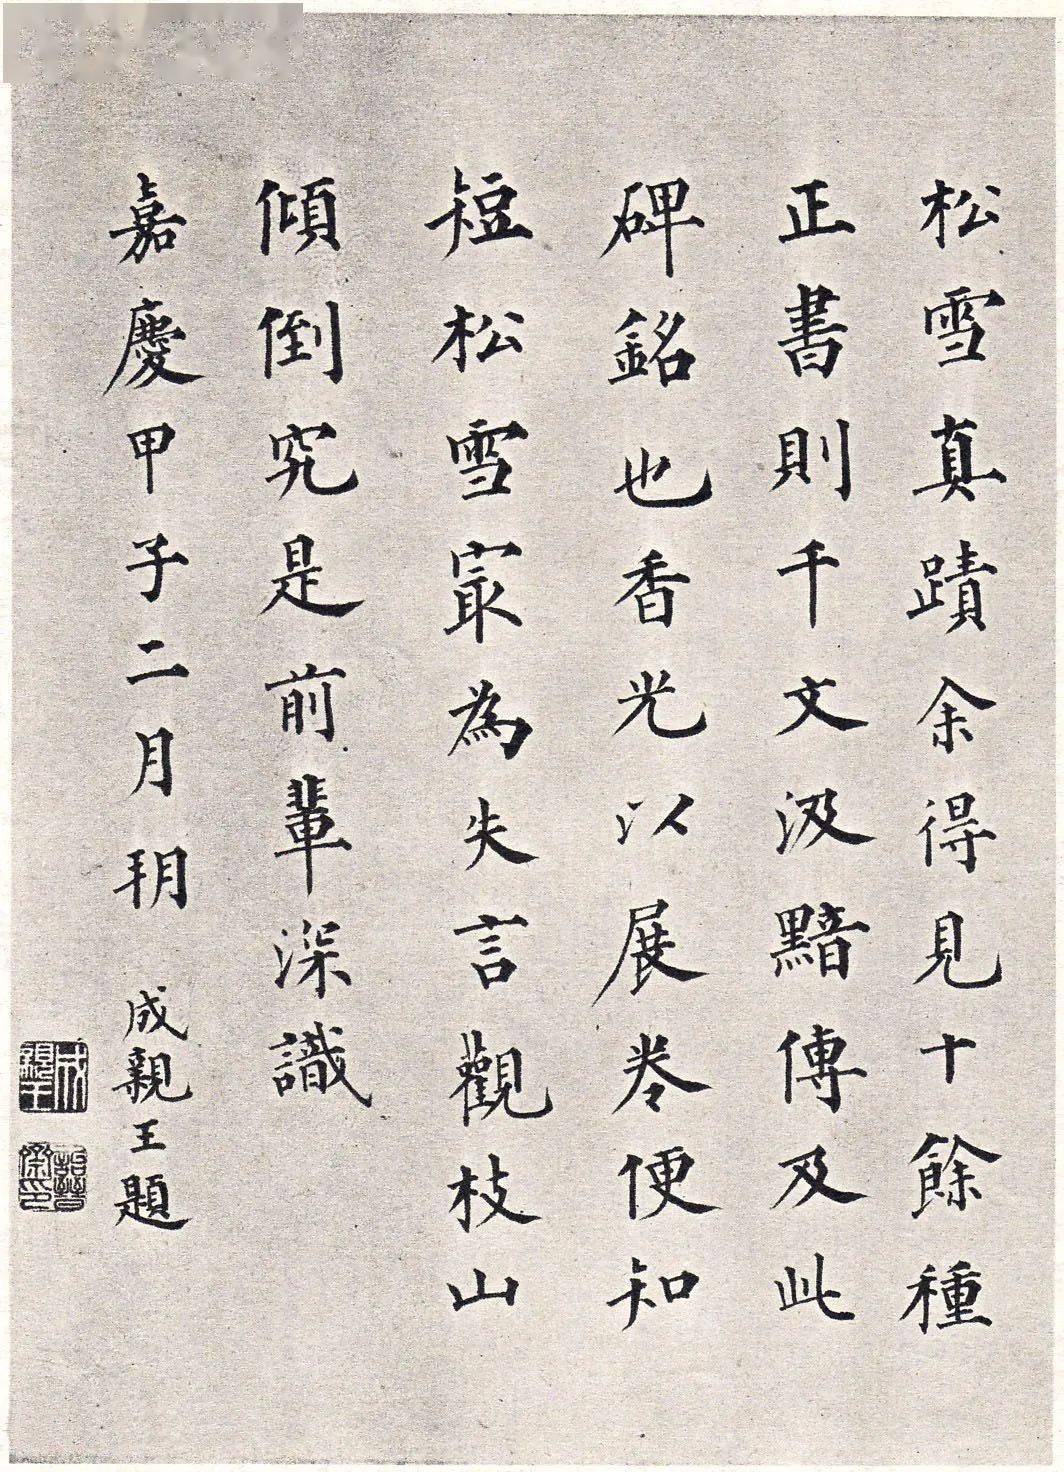 松雪真蹟余得見十餘種
正書則千文汲黯傳及此
碑銘也香光以展卷便知
短松雪冣為失言觀枝山
傾倒究是前輩深識
嘉慶甲子二月朔
成親王題
成親王
詒晉齋印